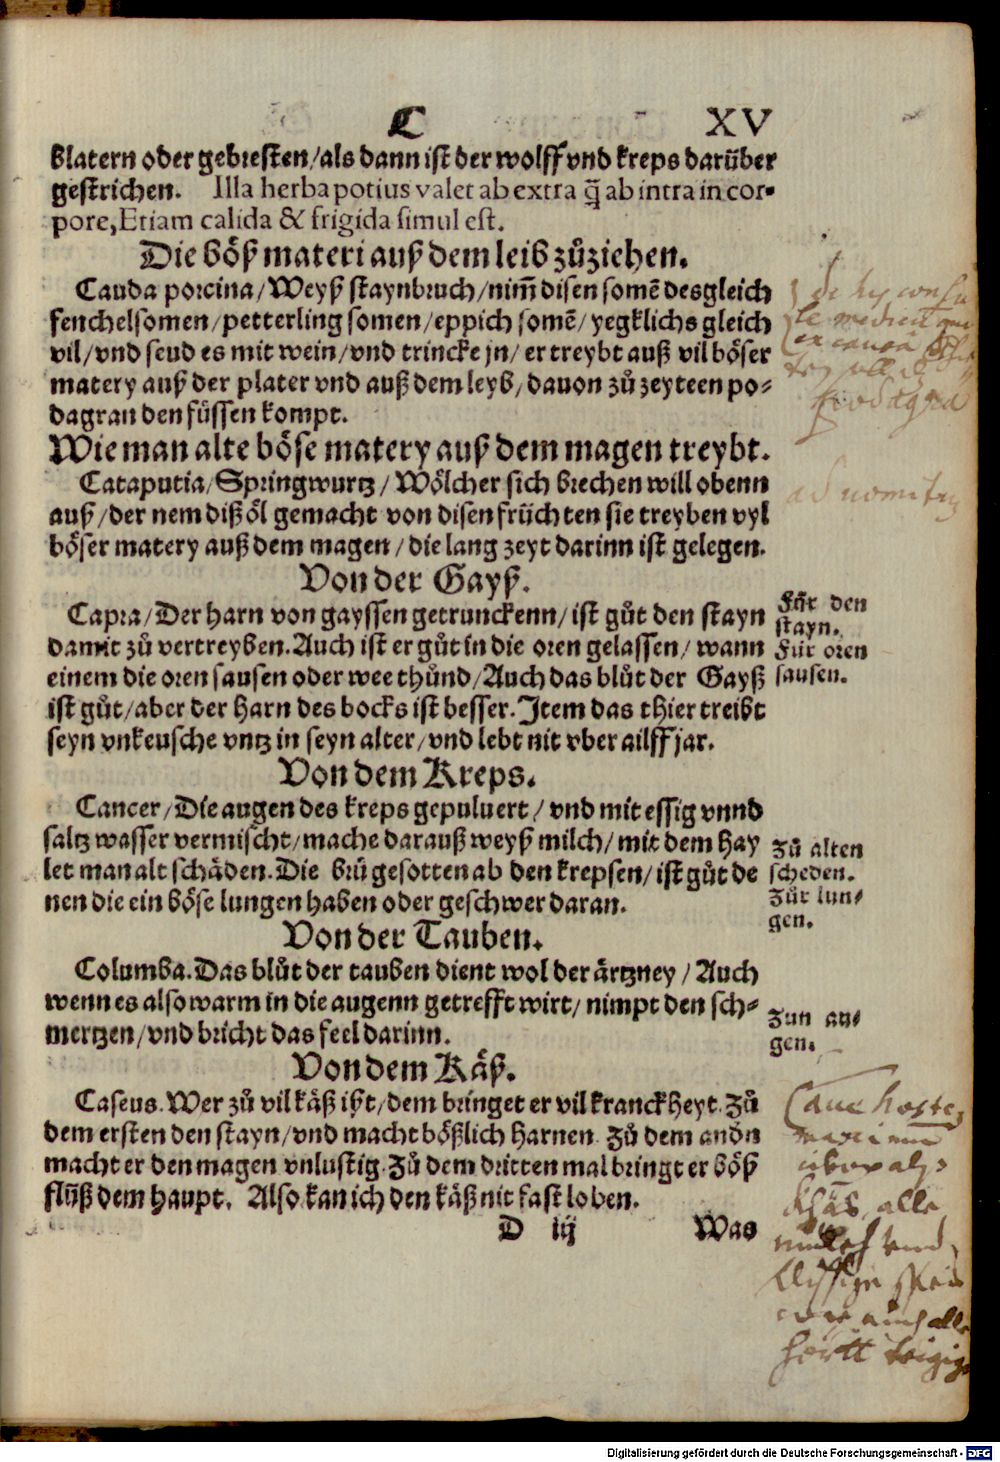 C XV
blatern oder gebresten/als dann ist der wolff vnd kreps darüber
gestrichen. Illa herba potius valet ab extra q̃ ab intra in cor-
pore, Etiam calida & frigida simul est.
Die böß materi auß dem leib zůziehen.
Cauda porcina/Weyß staynbruch/nim̃ disen somẽ desgleich
fenchelsomen/petterling somen/eppich somẽ/yegklichs gleich
vil/vnd seud es mit wein/vnd trincke jn/er treybt auß vil böser
matery auß der plater vnd auß dem leyb/dauon zů zeyteen po-
dagran den füssen kompt.
Wie man alte böse matery auß dem magen treybt.
Cataputia/Springwurtz/Wölcher sich brechen will obenn
auß/der nem diß öl gemacht von disen früchten sie treyben vyl
böser matery auß dem magen/die lang zeyt darinn ist gelegen.
Von der Gayß.
Capra/Der harn von gayssen getrunckenn/ist gůt den stayn
damit zů vertreyben.Auch ist er gůt in die oren gelassen/wann
einem die oren sausen oder wee thůnd/Auch das blůt der Gayß
ist gůt/aber der harn des bocks ist besser.Item das thier treibt
seyn vnkeusche vntz in seyn alter/vnd lebt nit vber ailff jar.
Für den
stayn.
Für oren
sausen.
Von dem Kreps.
Cancer/Die augen des kreps gepuluert/vnd mit essig vnnd
saltz wasser vermischt/mache darauß weyß milch/mit dem hay
let man alt schäden.Die brü gesotten ab den krepsen/ist gůt de
nen die ein böse lungen haben oder geschwer daran.
Zů alten
scheden.
Zůr lun-
gen.
Von der Tauben.
Columba.Das blůt der tauben dient wol der ärtzney/Auch
wenn es also warm in die augenn getrefft wirt/nimpt den sch-
mertzen/vnd bricht das feel darinn.
Zun au-
gen.
Von dem Käß.
Caseus.Wer zů vil käß ißt/dem bringet er vil kranckheyt.Zů
dem ersten den stayn/vnd macht bößlich harnen.Zů dem andn̄
macht er den magen vnlustig.Zů dem dritten mal bringt er böß
flüß dem haupt. Also kan ich den käß nit fast loben.
D iij Was
ad vomitum
Cave
alle
Digitalisierung gefördert durch die Deutsche Forschungsgemeinschaft - DFG